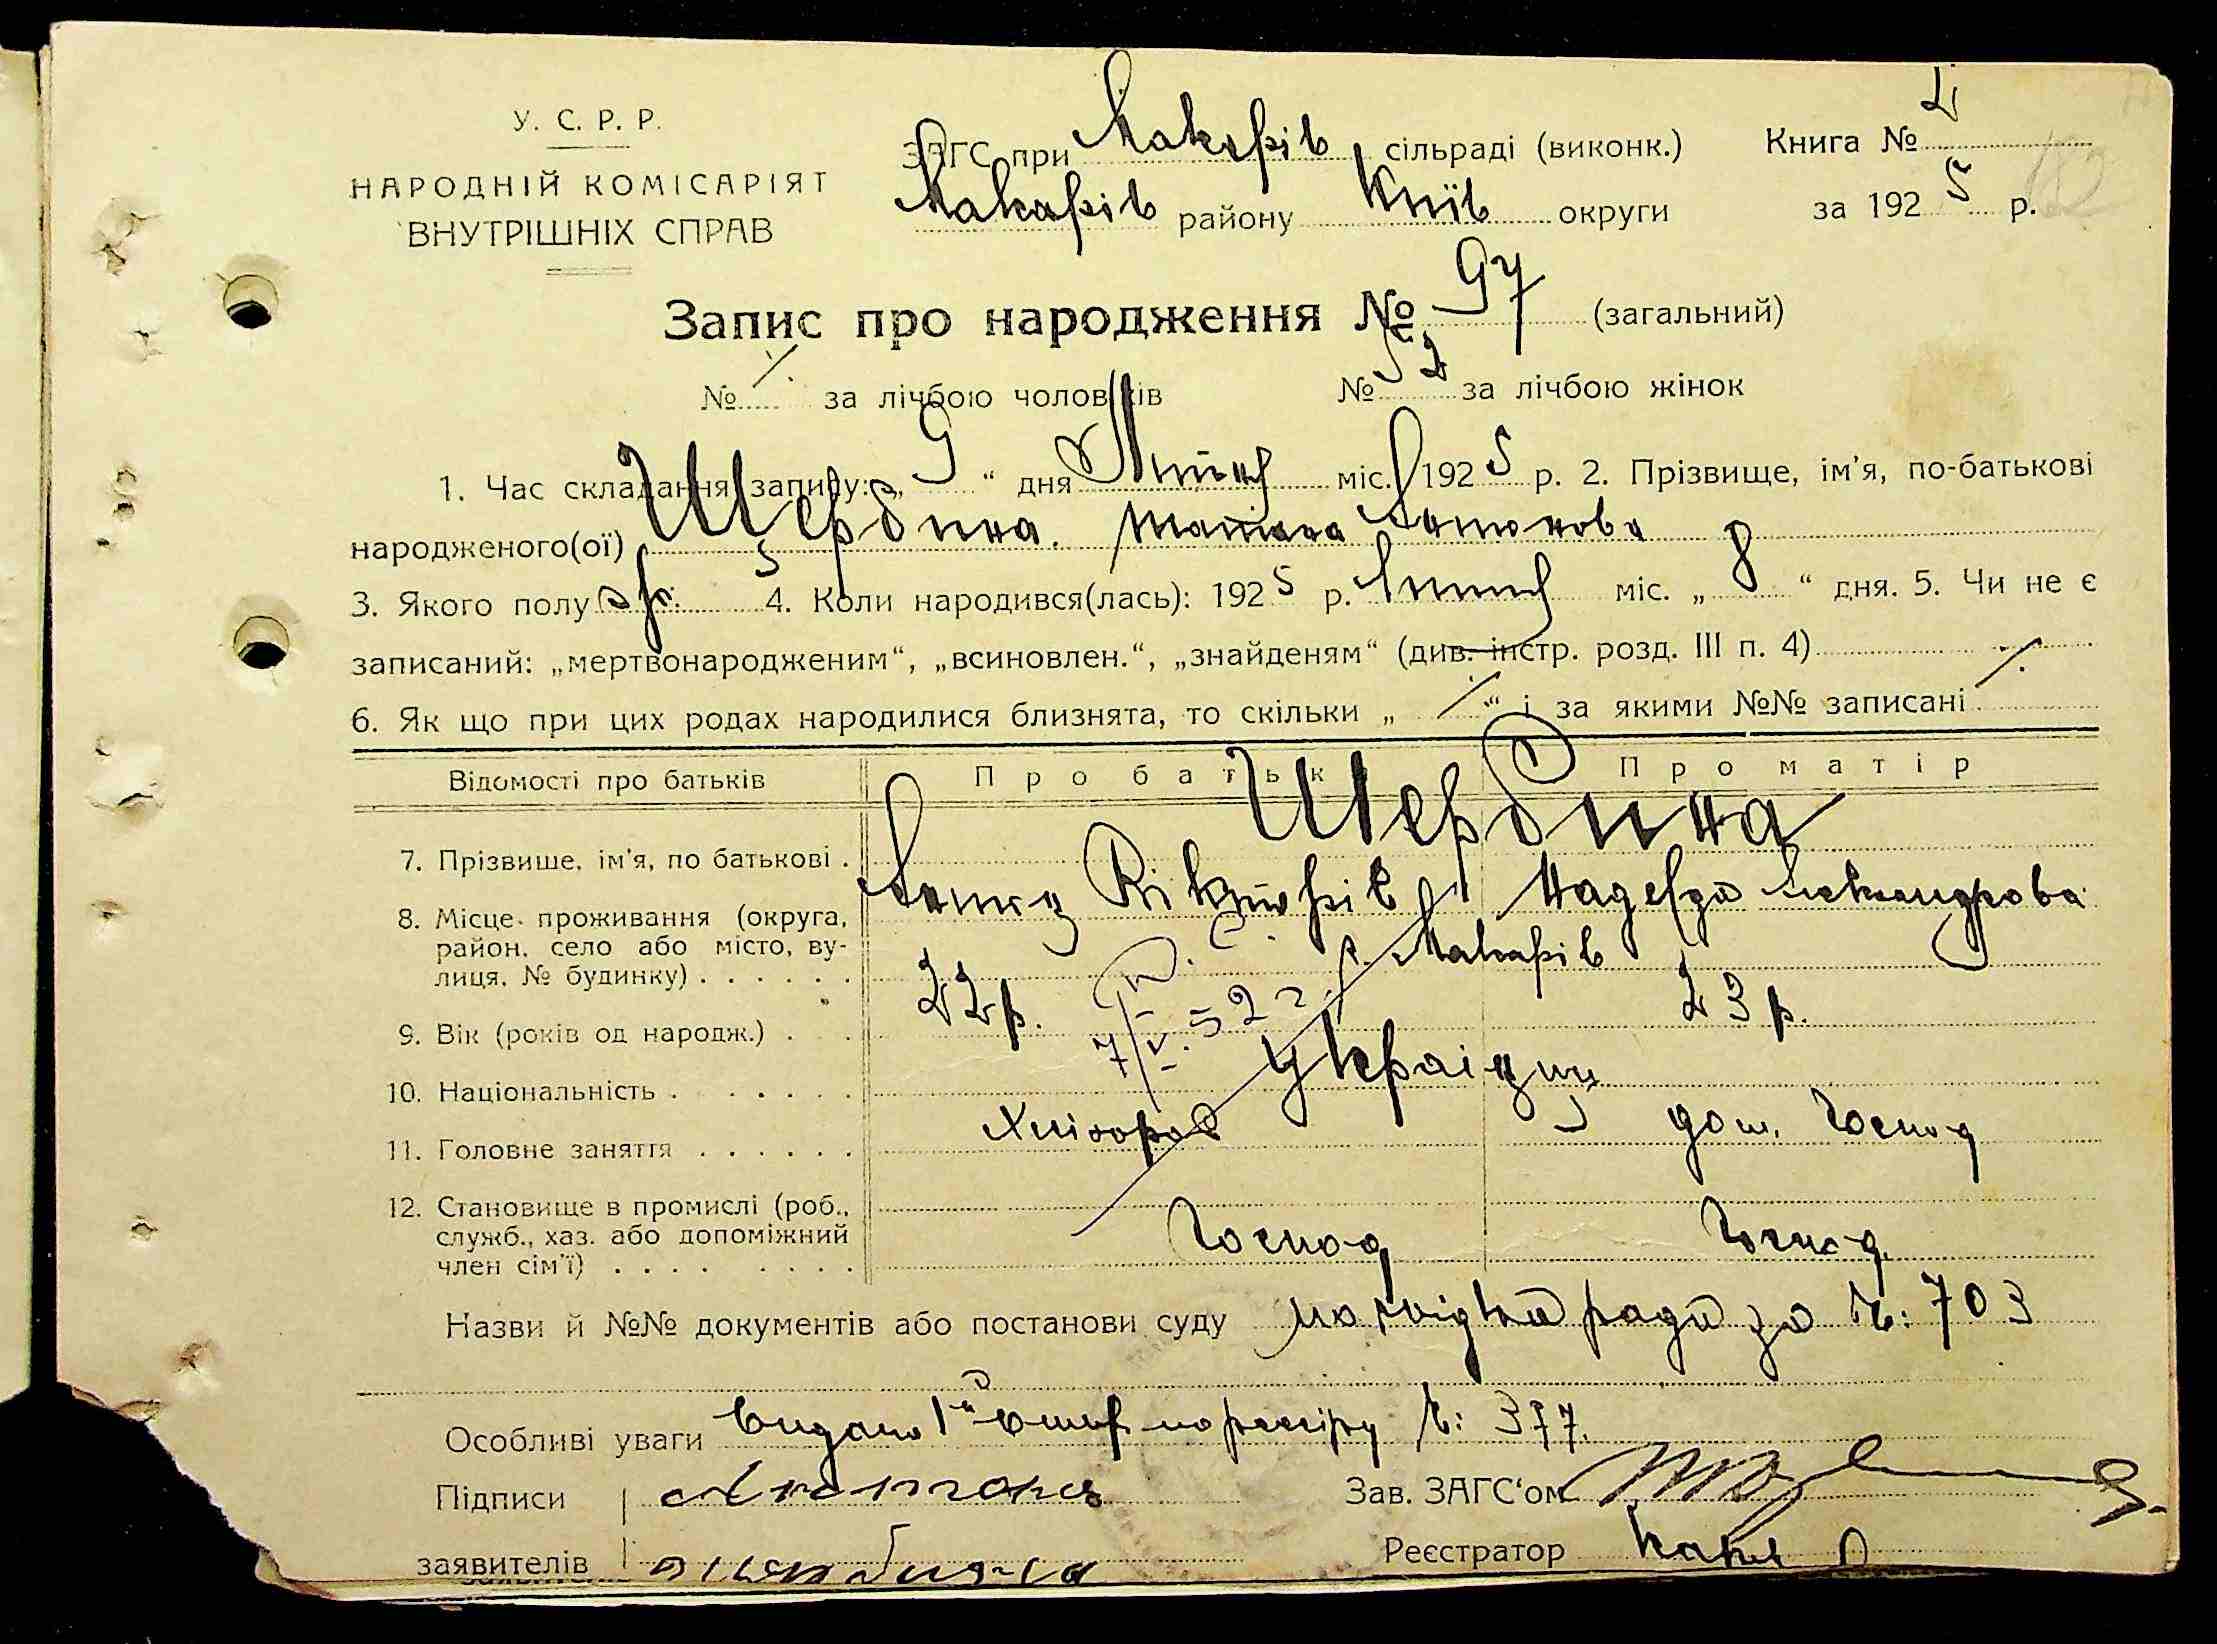 У. С. Р. Р.
НАРОДНІЙ КОМІСАРІЯТ
ВНУТРІШНІХ СПРАВ
ЗАГС при Макарів сільраді (виконк.)
Макарів району Київ округи
Книга № 2
за 1925 р.
Запис про народження № 97 (загальний)
№ /. за лічбою чоловіків № 52 за лічбою жінок
1. Час складання запису: „ 9 “ дня Липця міс. 1925 р. 2. Прізвище, ім'я, по-батькові
народженого(ої) Щербина Татіана Антонова
3. Якого полу ж. 4. Коли народився(лась): 1925 р. Липця міс. „ 8 “ дня. 5. Чи не є
записаний: „мертвонародженим“, „всиновлен.“, „знайденям“ (див. інстр. розд. III п. 4) /.
6. Як що при цих родах народилися близнята, то скільки „ / “ і за якими №№ записані /.
Відомості про батьків Про батька Про матір
Щербина
7. Прізвище, ім'я, по батькові . Антін Вікторів Надежда Александрова
8. Місце проживання (округа, район, село або місто, вулиця, № будинку) . . . . . . Макарів
9. Вік (років од народж.) . . 22 р. 23 р.
7/V. 52 г.
10. Національність . . . . . . . Українці
11. Головне заняття . . . . . . Хлібороб дом. господ
12. Становище в промислі (роб., служб., хаз. або допоміжний член сім'ї) . . . . . . . . Господ Господ
Назви й №№ документів або постанови суду посвідка ради за №: 703
Особливі уваги Видано по реєстру №: 377.
Підписи Антон
заявителів Щербина
Зав. ЗАГС'ом
Реєстратор